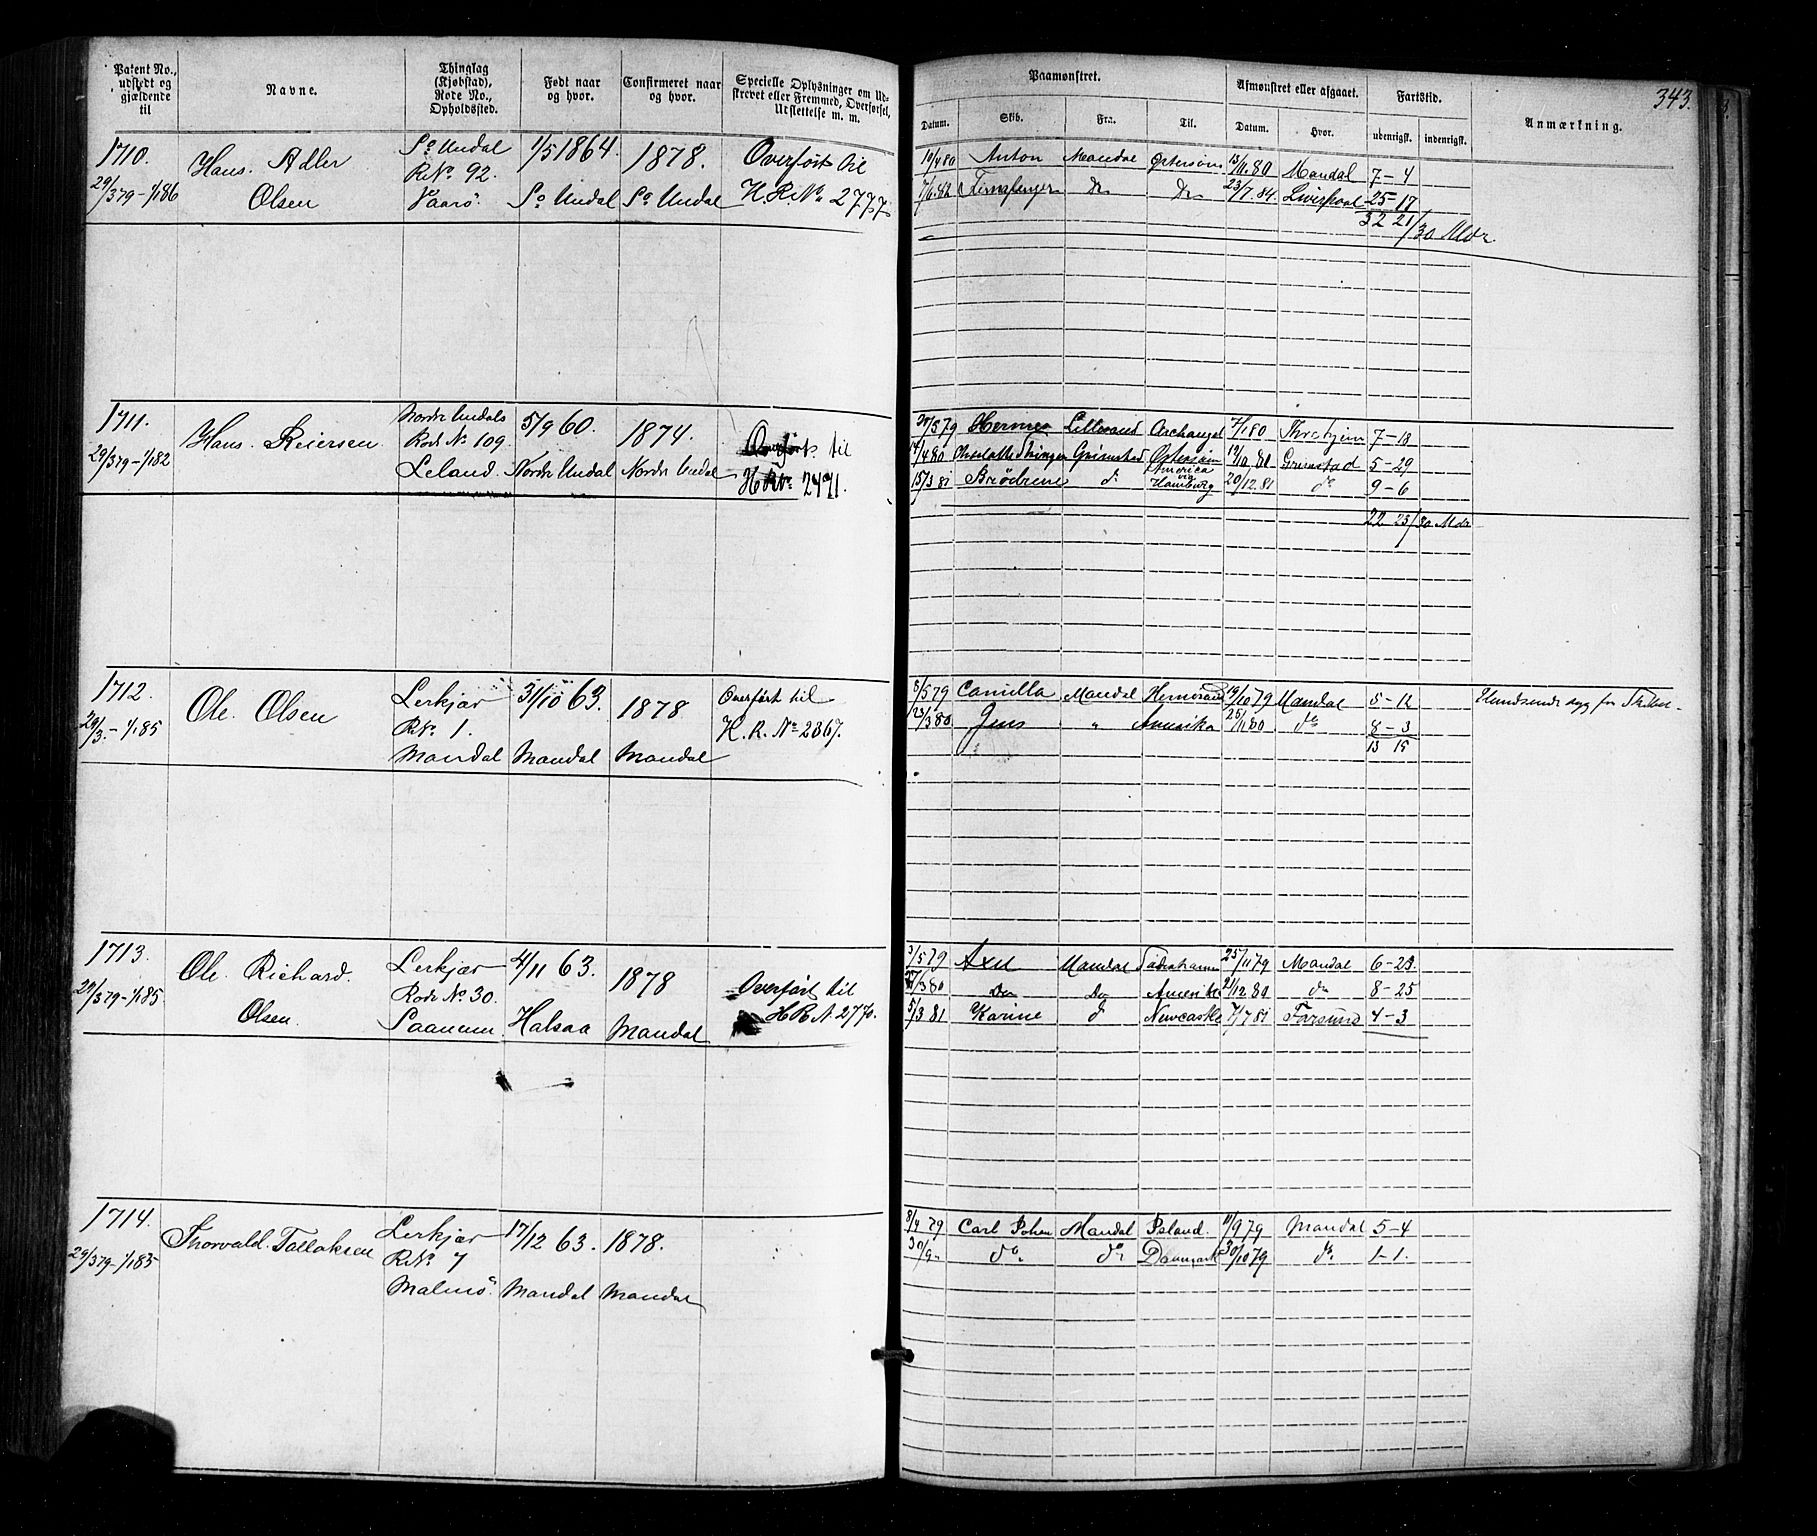 343.
Patent No., udstedt og gjældende til
Navne.
Thinglag (Kjøbstad), Rode No., Opholdssted.
Født naar og hvor.
Confirmeret naar og hvor.
Specielle Oplysninger om Udskrevet eller Fremmed, Overførsel, Udslettelse m. m.
Paamønstret.
Afmønstret eller afgaaet.
Fartstid.
Anmærkning.
Datum. Skib. Fra. Til. Datum. Hvor. udenrigsk. indenrigsk.
1710. Hans. Adler Olsen
29/3 79 – 1/1 86
So Undal R.No. 92. Vaarø.
1/5 1864. So Undal
1878. So Undal
Overført til H.R.No. 2777
10/4 80 Anton Mandal Østersøen 13/11 80 Mandal 7 – 4
7/6 82 Do Do 23/7 84. Liverpool 25 – 17
32 21/30 Mdr
1711. Hans. Reiersen
29/3 79 – 1/1 82
Nordre Undals Rode No 109. Leland.
5/9 60. Nordre Undal
1874. Nordre Undal
Overført til H.R.No. 2471.
30/5 79 Hermes Lillesand Archangel 7/1 80 7 – 18
14/4 80 Grimstad Østersøen 19/10 80 Grimstad 5 – 29
15/3 81 Brödrene do America via Hamburg 20/12 81 do 9 – 6
22 23/30 Mdr
1712. Ole. Olsen
29/3. – 1/1 85
Lerkjær R.No. 1. Mandal
31/10 63. Mandal
1878 Mandal
Overført til H. R. No 2367.
8/5 79 Camilla Mandal 19/10 79 Mandal 5 – 12
23/3 80 Jens " Amerika 25/11 80 do 8 – 3
13 15
1713. Ole. Richard. Olsen.
29/3 79 – 1/1 85
Lerkjær Rode No. 30. Saanum
4/11 63. Halsaa
1878 Mandal
Overført til H R N. 2770.
3/5 79 Axel Mandal 25/11 79 Mandal 6 – 23.
27/3 80 Do Do Amerika 2/12 80 do 8 – 25
5/3 81 Karine do Newcastle 7/7 81 Farsund 4 – 3
1714. Thorvald. Tallaksen
29/3 79 – 1/1 85
Lerkjær R.No. 7 Malmø.
17/12 63. Mandal
1878. Mandal
8/4 79 Carl Johan Mandal Island. 11/9 79 Mandal 5 – 4
30/9 – do do Danmark 30/10 79 do 1 – 1.